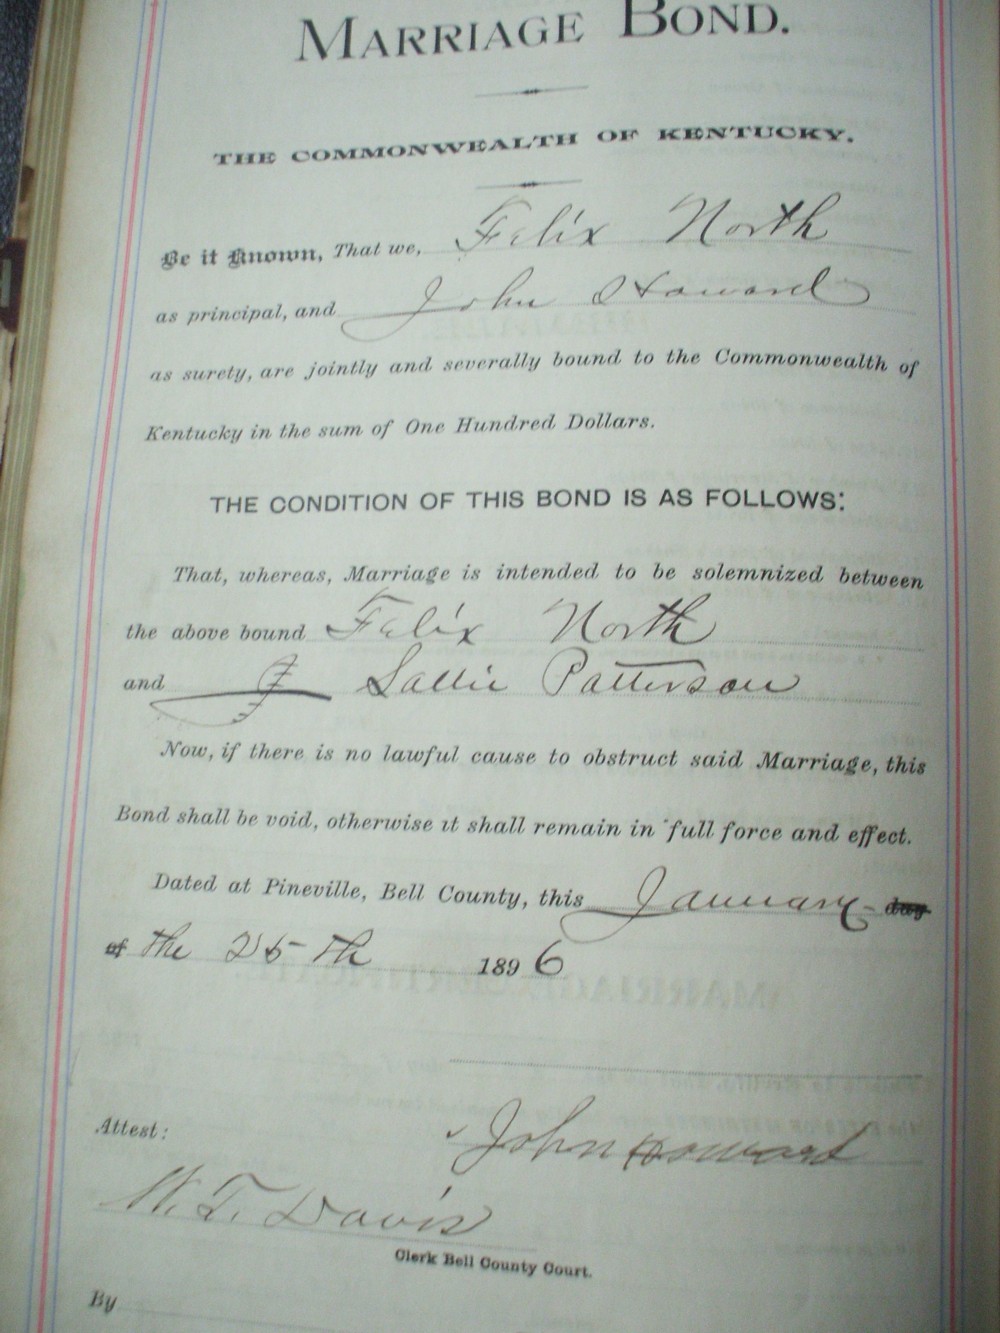 MARRIAGE BOND.
THE COMMONWEALTH OF KENTUCKY.
Be it Known, That we, Felix North
as principal, and John Howard
as surety, are jointly and severally bound to the Commonwealth of
Kentucky in the sum of One Hundred Dollars.
THE CONDITION OF THIS BOND IS AS FOLLOWS:
That, whereas, Marriage is intended to be solemnized between
the above bound Felix North
and J Sallie Patterson
Now, if there is no lawful cause to obstruct said Marriage, this
Bond shall be void, otherwise it shall remain in full force and effect.
Dated at Pineville, Bell County, this January day
of the 25th 1896
John Howard
Attest:
W. T. Davis
Clerk Bell County Court.
By